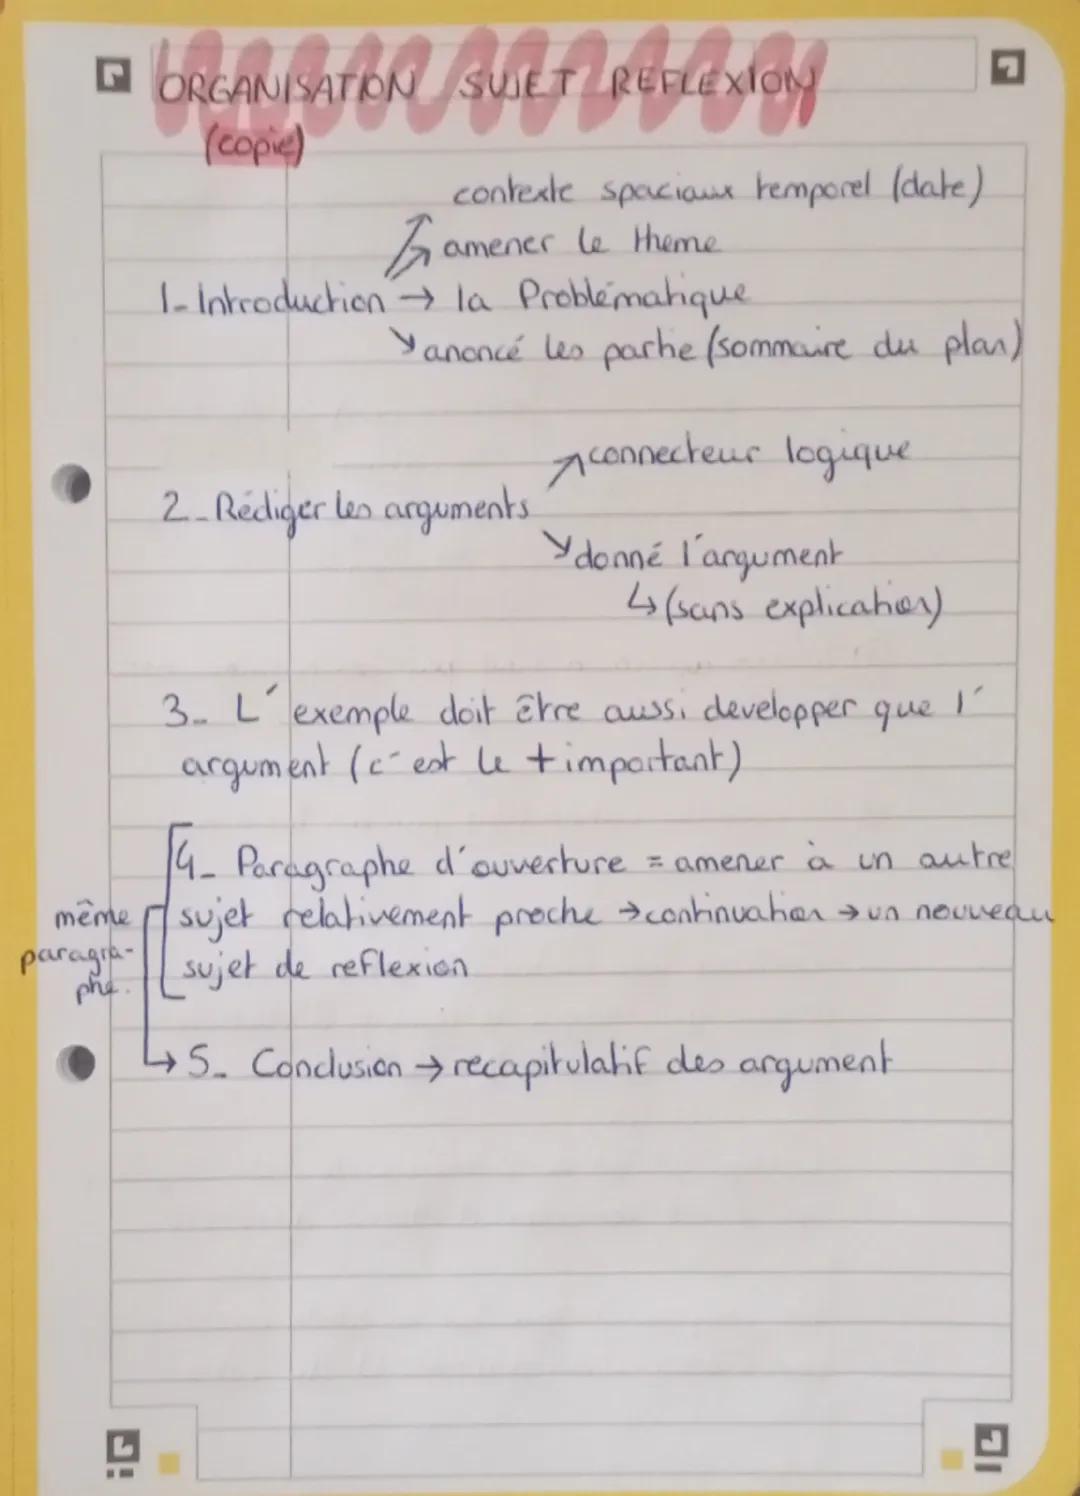 ORGANISATION SUJET REFLEXION
(copie)
contexte spaciaux temporel (date)
amener le theme
1- Introduction → la Problématique
anoncé les partie (sommaire du plan)
connecteur logique
2- Rédiger les arguments
donné l'argument
↳ (sans explication)
3- L' exemple doit être aussi developper que l'
argument (c'est le + important)
4- Paragraphe d'ouverture = amener à un autre
sujet relativement proche → continuation → un nouveau
sujet de reflexion
même
paragra-
phe.
5- Conclusion → recapitulatif des argument